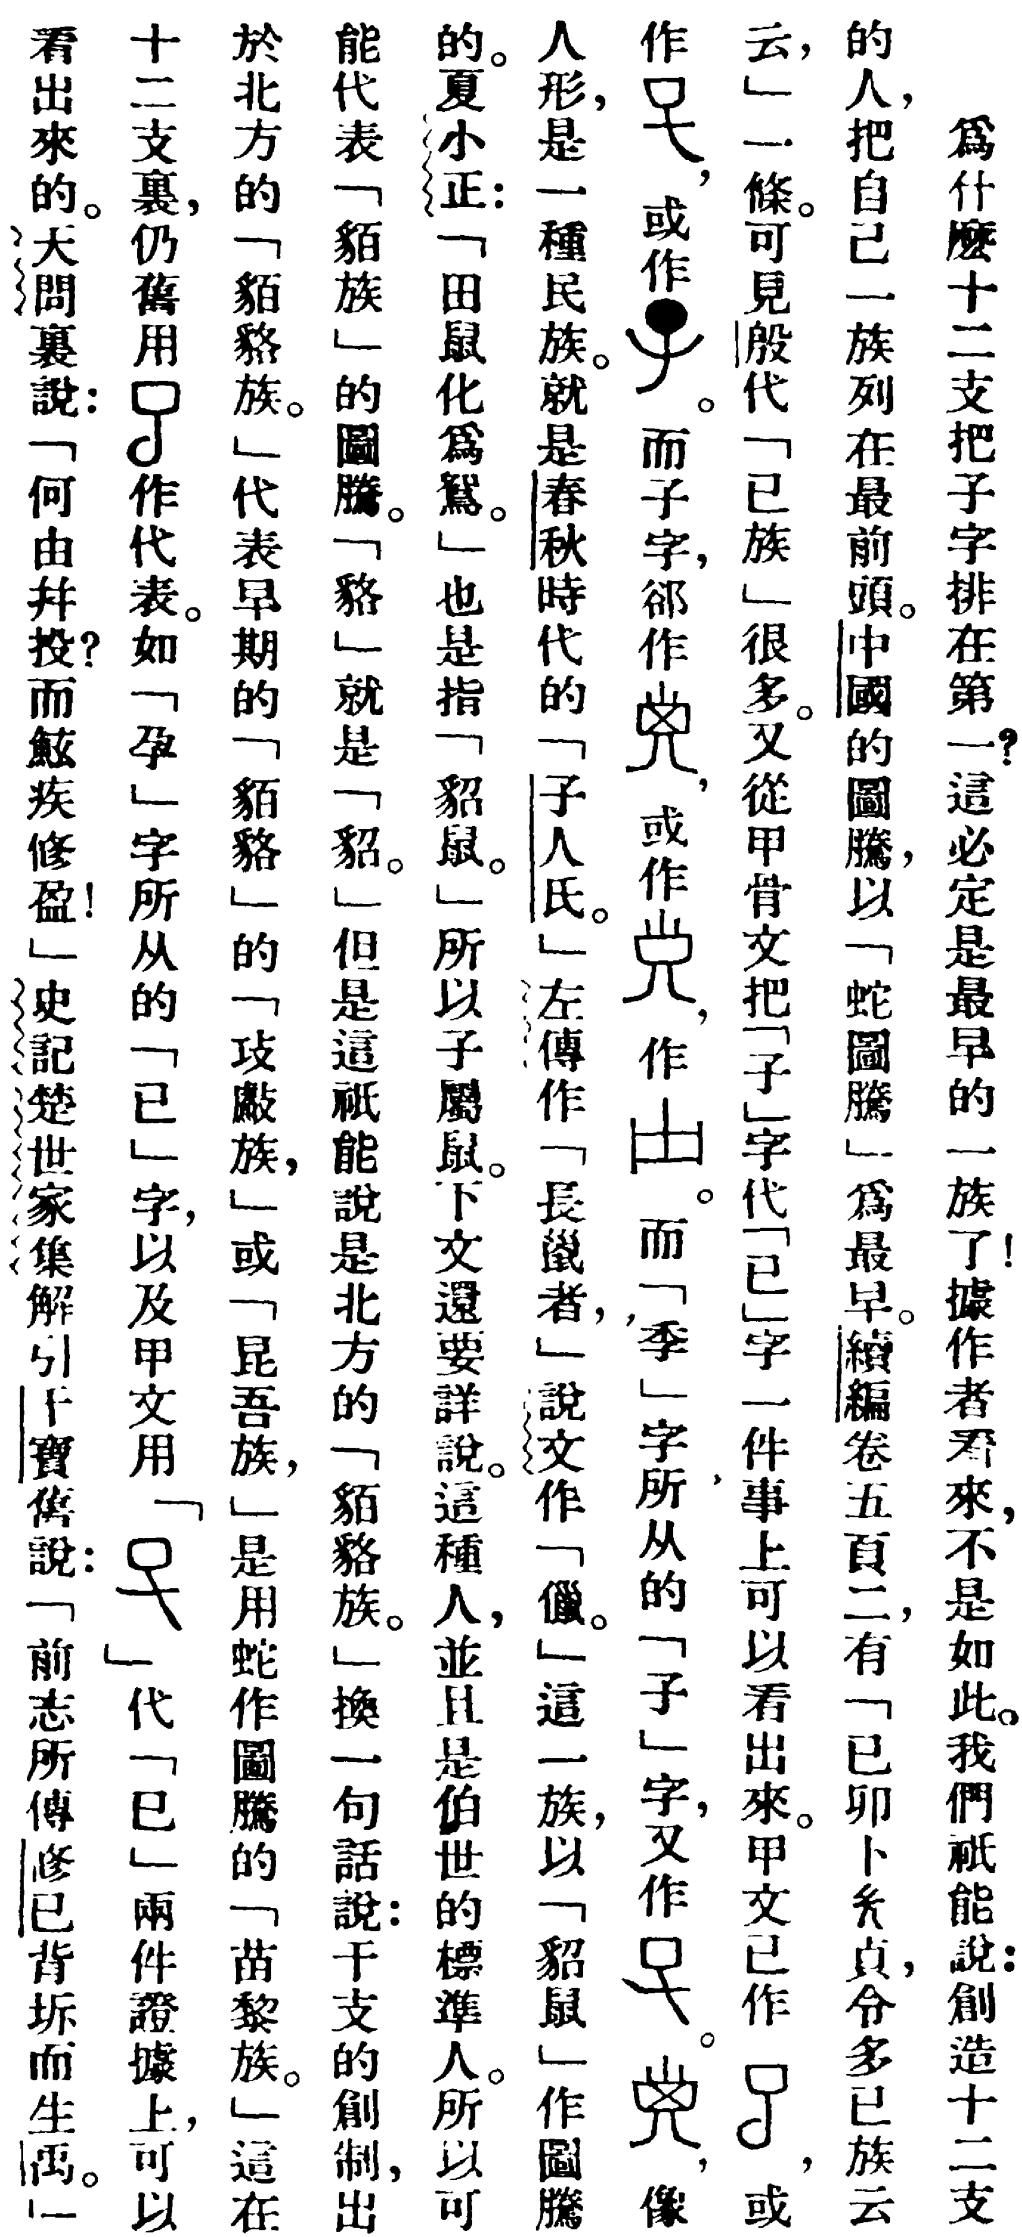 爲什麼十二支把子字排在第一?這必定是最早的一族了!據作者看來,不是如此。我們祇能說:創造十二支
的人,把自己一族列在最前頭。中國的圖騰,以「蛇圖騰」爲最早。續編卷五頁二,有「已卯卜 貞,令多已族云
云,」一條。可見殷代「已族」很多。又從甲骨文把「子」字代「已」字一件事上可以看出來。甲文已作 ,或
作 ,或作 。而子字,郤作 ,或作 ,作 。而「季」字所从的「子」字,又作 。 ,像
人形,是一種民族。就是春秋時代的「子人氏。」左傳作「長鬛者,」說文作「儠。」這一族,以「貂鼠」作圖騰
的。夏小正:「田鼠化爲鴽。」也是指「貂鼠。」所以子屬鼠。下文還要詳說。這種人,並且是伯世的標準人。所以可
能代表「貊族」的圖騰。「貉」就是「貂。」但是這祇能說是北方的「貊貉族。」換一句話說:干支的創制,出
於北方的「貊貉族。」代表早期的「貊貉」的「攻敵族,」或「昆吾族,」是用蛇作圖騰的「苗黎族。」這在
十二支裏,仍舊用 作代表。如「孕」字所从的「已」字,以及甲文用「 」代「巳」兩件證據上,可以
看出來的。天問裏說:「何由并投?而鮌疾修盈!」史記楚世家集解引干寶舊說:「前志所傳修已背坼而生禹。」